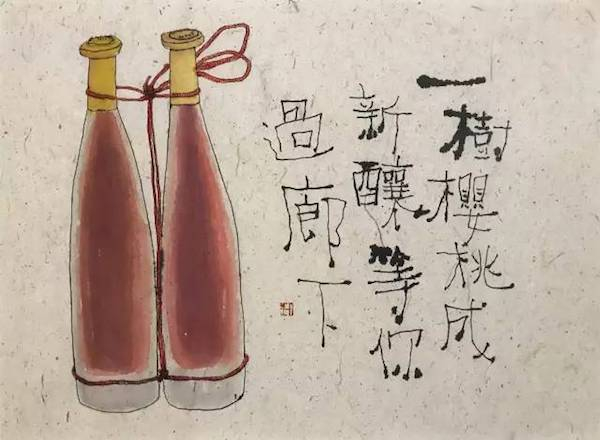 一樹櫻桃成
新釀等你
過廊下